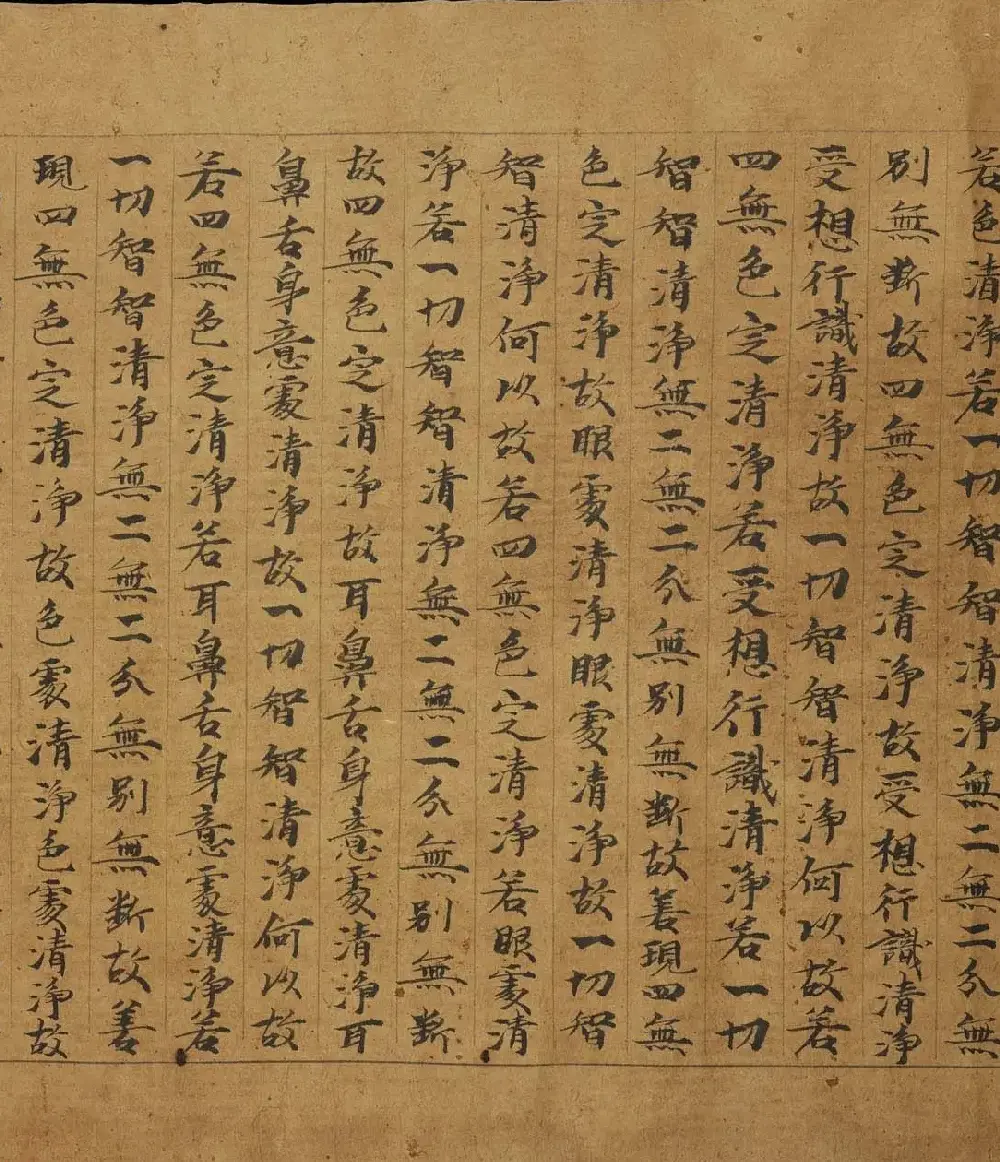 若色清淨若一切智智清淨無二無二分無
別無斷故四無色定清淨故受想行識清淨
受想行識清淨故一切智智清淨何以故若
四無色定清淨若受想行識清淨若一切
智智清淨無二無二分無別無斷故善現四無
色定清淨故眼處清淨眼處清淨故一切智
智清淨何以故若四無色定清淨若眼處清
淨若一切智智清淨無二無二分無別無斷
故四無色定清淨故耳鼻舌身意處清淨耳
鼻舌身意處清淨故一切智智清淨何以故
若四無色定清淨若耳鼻舌身意處清淨若
一切智智清淨無二無二分無別無斷故善
現四無色定清淨故色處清淨色處清淨故